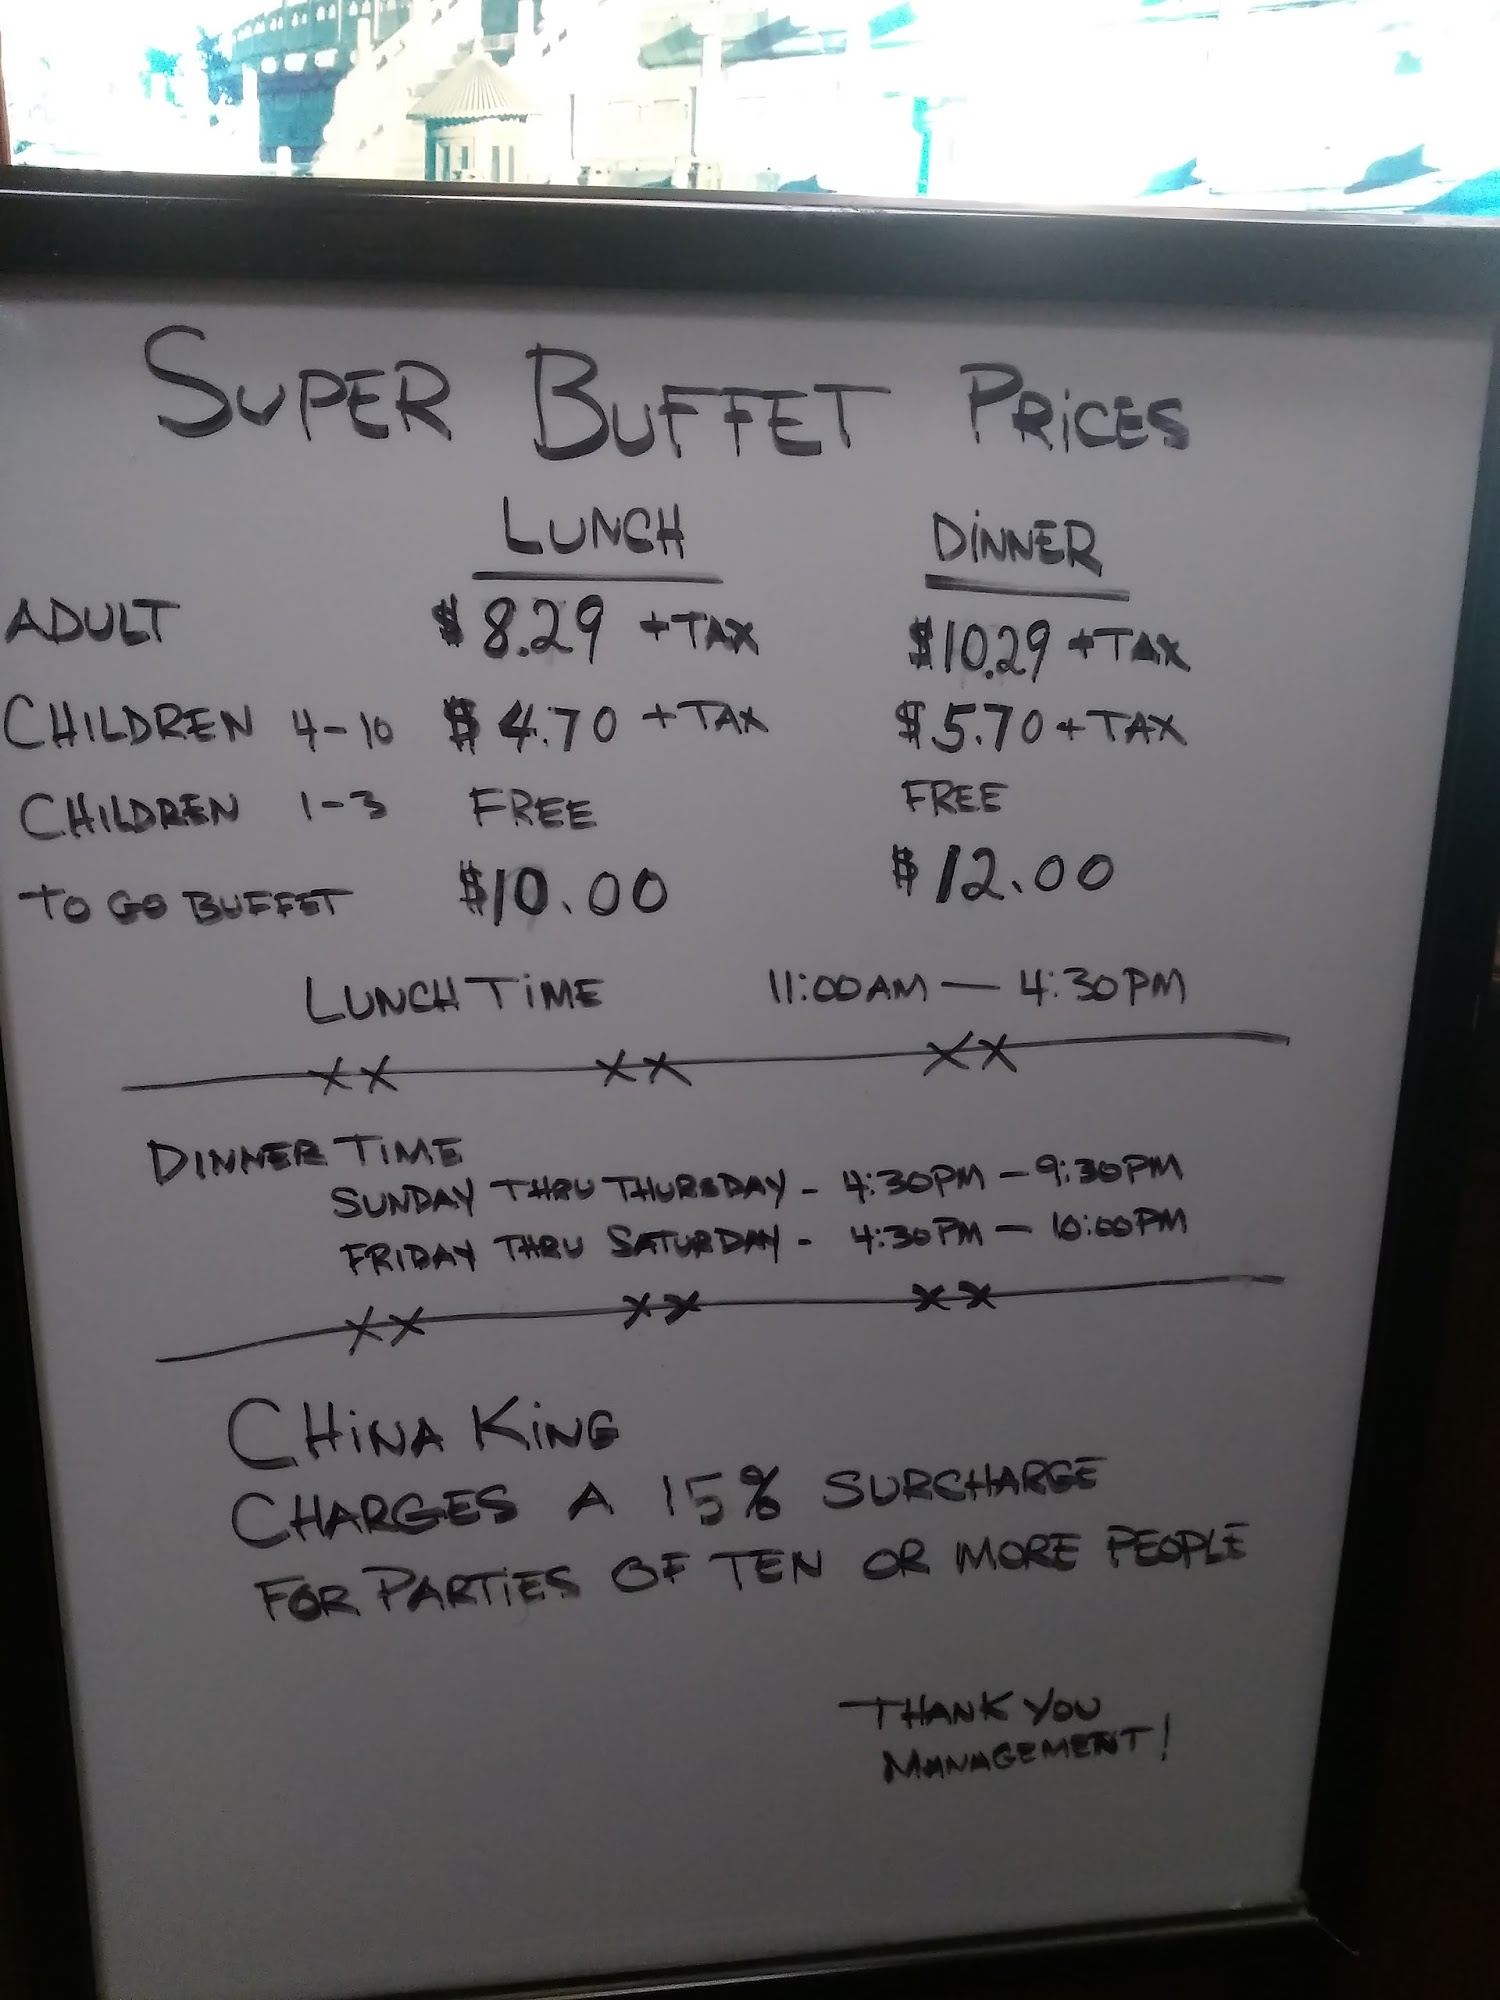 SUPER BUFFET PRICES
LUNCH DINNER
ADULT $8.29 +TAX $10.29 +TAX
CHILDREN 4-10 $4.70 +TAX $5.70 +TAX
CHILDREN 1-3 FREE FREE
TO GO BUFFET $10.00 $12.00
LUNCH TIME 11:00AM — 4:30PM
XX XX XX
DINNER TIME
SUNDAY THRU THURSDAY - 4:30PM - 9:30PM
FRIDAY THRU SATURDAY - 4:30PM - 10:00PM
XX XX XX
CHINA KING
CHARGES A 15% SURCHARGE
FOR PARTIES OF TEN OR MORE PEOPLE
THANK YOU
MANAGEMENT!